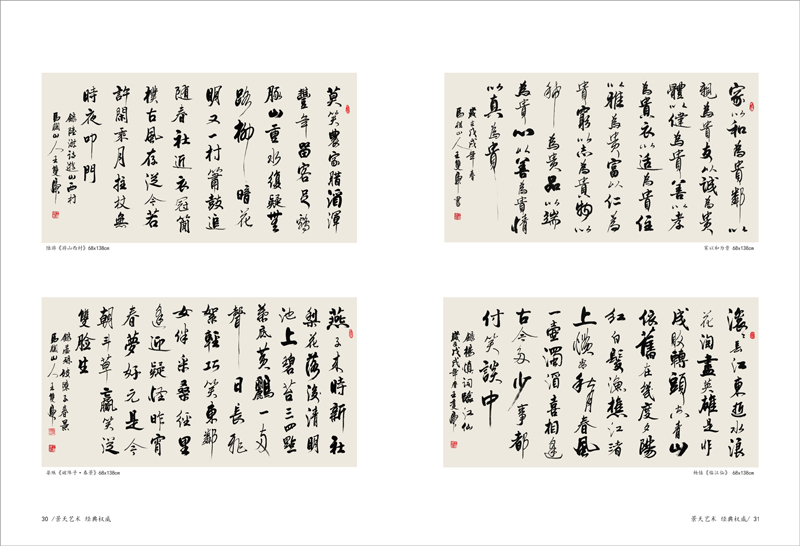 莫笑農家腊酒渾
豐年留客足鷄
豚山重水復疑無
路柳暗花
明又一村簫鼓追
隨春社近衣冠簡
樸古風存從今若
許閑乘月拄杖無
時夜叩門
錄陸游詩遊山西村
山人王
陆游《游山西村》68x138cm
燕子來時新社
梨花落後清明
池上碧苔三四點
葉底黃鸝一兩
聲日長飛
絮輕巧笑東鄰
女伴采桑徑里
逢迎疑怪昨宵
春夢好元是今
朝鬥草贏笑從
雙臉生
錄晏殊破陣子春景
山人王
晏殊《破阵子·春景》68x138cm
30 /景天艺术 经典权威
家以和為貴鄰以
親為貴友以誠為貴
體以健為貴善以孝
為貴衣以适為貴住
以雅為貴富以仁為
貴窮以志為貴物以
稀為貴品以端
為貴心以善為貴情
以真為貴
歲在戊戌年春
山人王 書
家以和为贵 68x138cm
滾々長江東逝水浪
花淘盡英雄是非
成敗轉頭空青山
依舊在幾度夕陽
紅白髮漁樵江渚
上慣看秋月春風
一壺濁酒喜相逢
古今多少事都
付笑談中
錄楊慎詞臨江仙
歲在戊戌年春王
杨慎《临江仙》 68x138cm
景天艺术 经典权威/ 31